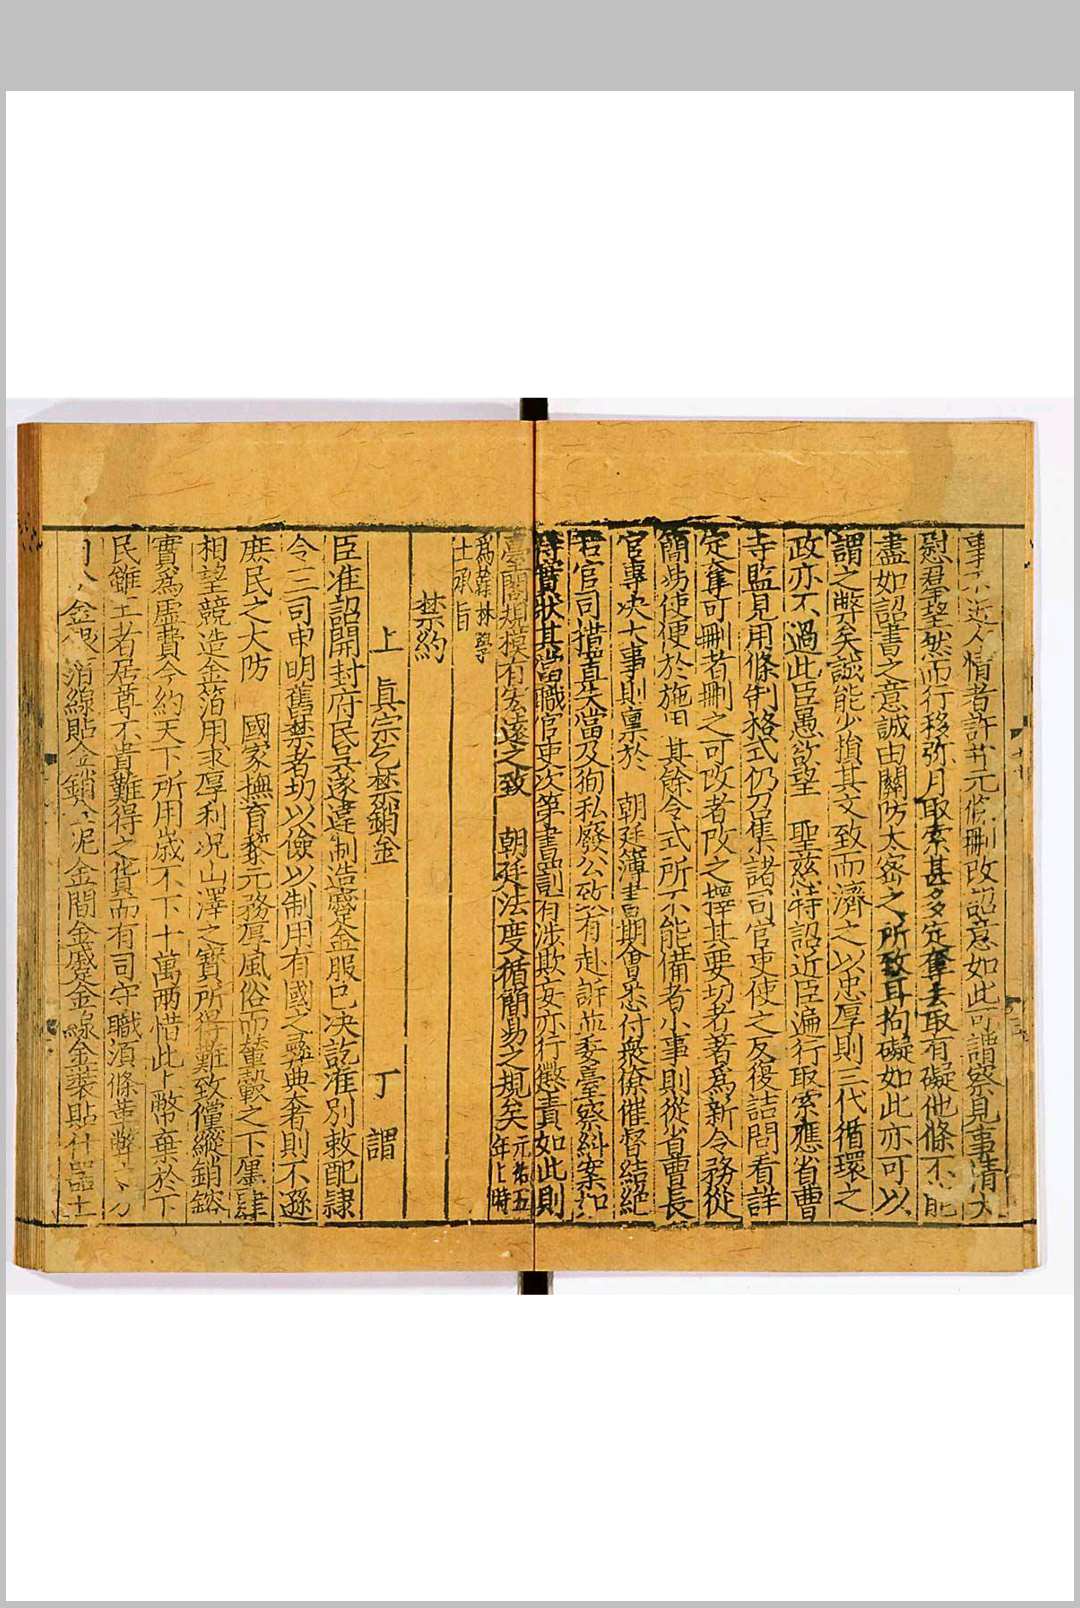 事不近人情者許並元條刪改詔意如此可謂察見事清大
慰羣望然而行移弥月取索甚多定奪去取有礙他條不能
盡如詔書之意誠由關防太宻之所致耳拘礙如此亦可以
謂之弊矣誠能少損其文致而濟之以忠厚則三代循環之
政亦不過此臣愚欲望 聖慈特詔近臣遍行取索應省曹
寺監見用條制格式仍召集諸司官吏使之反復詰問看詳
定奪可刪者刪之可改者改之擇其要切者著爲新令務從
簡易使便於施用 其餘令式所不能備者小事則從省曹長
官專决大事則稟於 朝廷簿書期會悉付衆僚催督結絕
若官司措置失當及狥私廢公致有赴訴並委臺察糾案如
得實狀其當職官吏次第書罰有涉欺妄亦行懲責如此則
臺閣規模有宏遠之致 朝廷法度循簡易之規矣元祐五年上時
爲翰林學士承旨
禁約
上 眞宗乞禁銷金 丁 謂
臣准詔開封府民吳遂違制造蹙金服已决訖准別敕配隷
令三司申明舊禁者切以儉以制用有國之彞典奢則不遜
庶民之大防 國家撫育黎元務厚風俗而輦轂之下廛肆
相望競造金箔用求厚利况山澤之寳所得難致儻縱銷鎔
實爲虛費今約天下所用歲不下十萬两惜此上幣棄於下
民雖王者居尊不貴難得之貨而有司守職湏條
金銀箔線貼金銷金泥金間金蹙金線金裝貼什器土